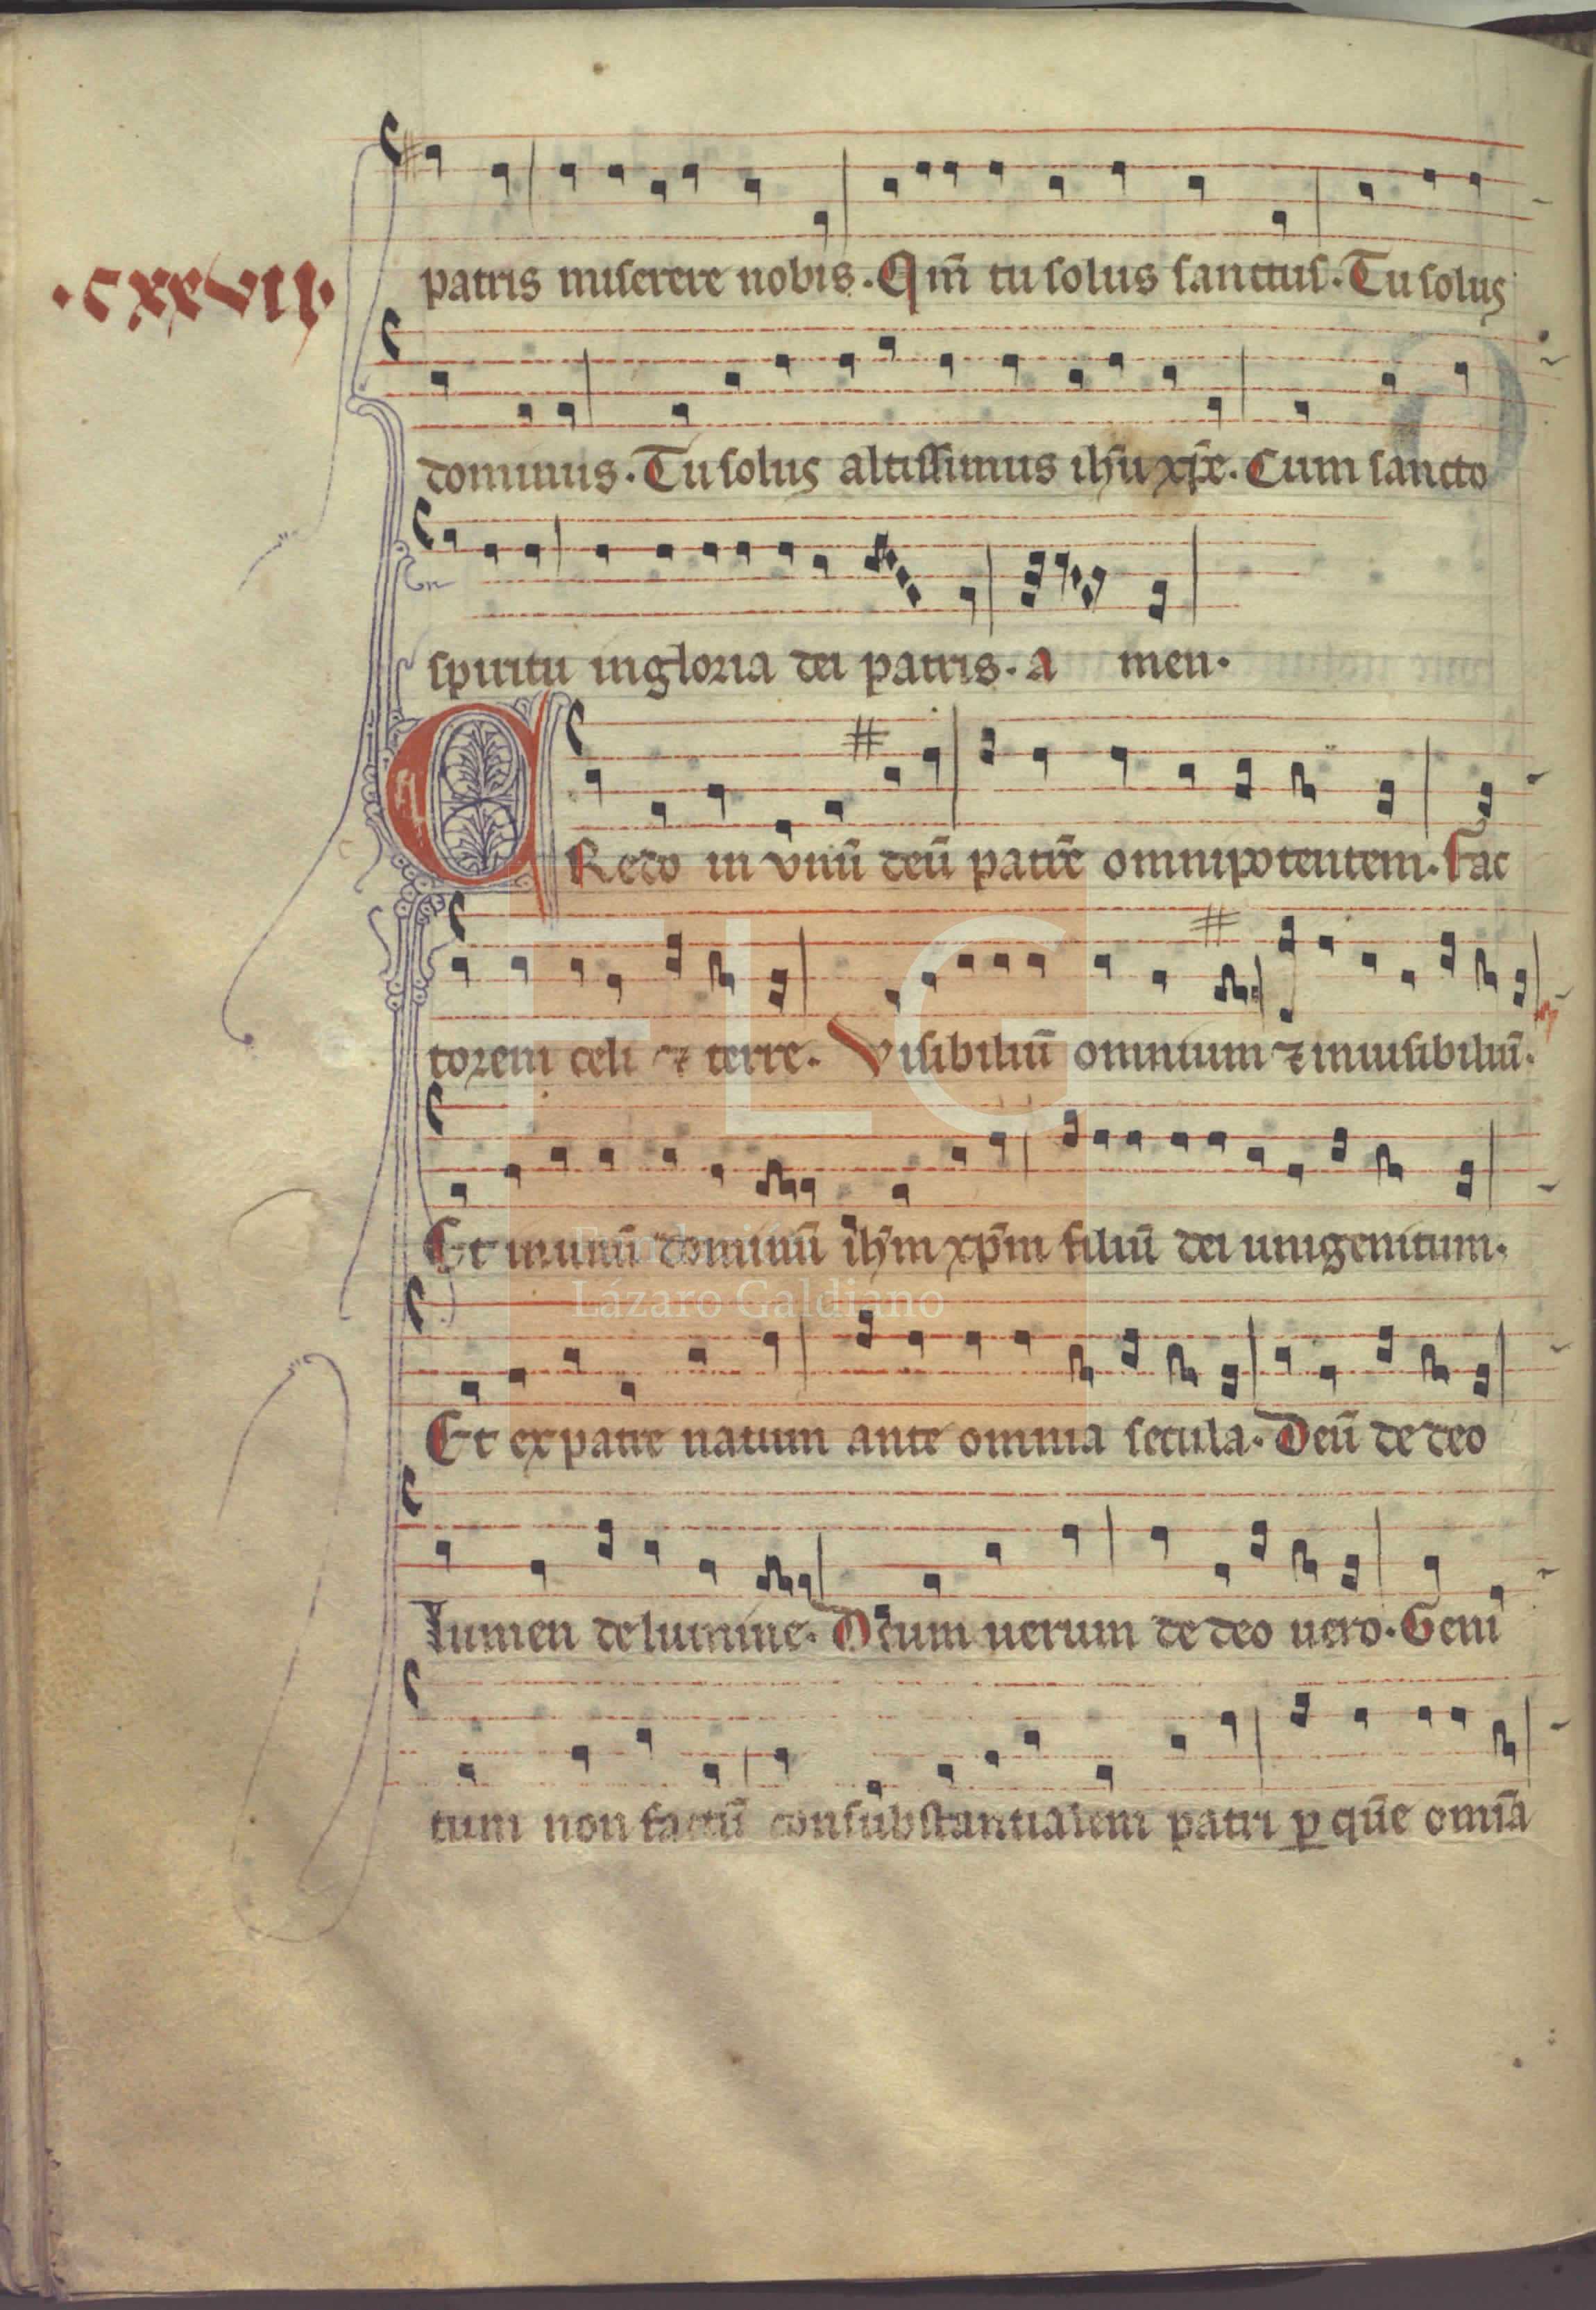 ·cxxvii·
patris miserere nobis. Qm̄ tu solus sanctus. Tu solus
dominus. Tu solus altissimus ihū xp̄e. Cum sancto
spiritu in gloria dei patris. a men.
CRedo in vnū deū patrē omnipotentem. fac
torem celi ⁊ terre. Visibiliū omnium ⁊ inuisibiliū.
Et in unū dominū ihm̄ xp̄m filiū dei unigenitum.
Et ex patre natum ante omnia secula. Deū de deo
lumen de lumine. Deum uerum de deo uero. Geni
tum non factū consubstantialem patri ꝑ quē omīa
FLG
Fundación
Lázaro Galdiano